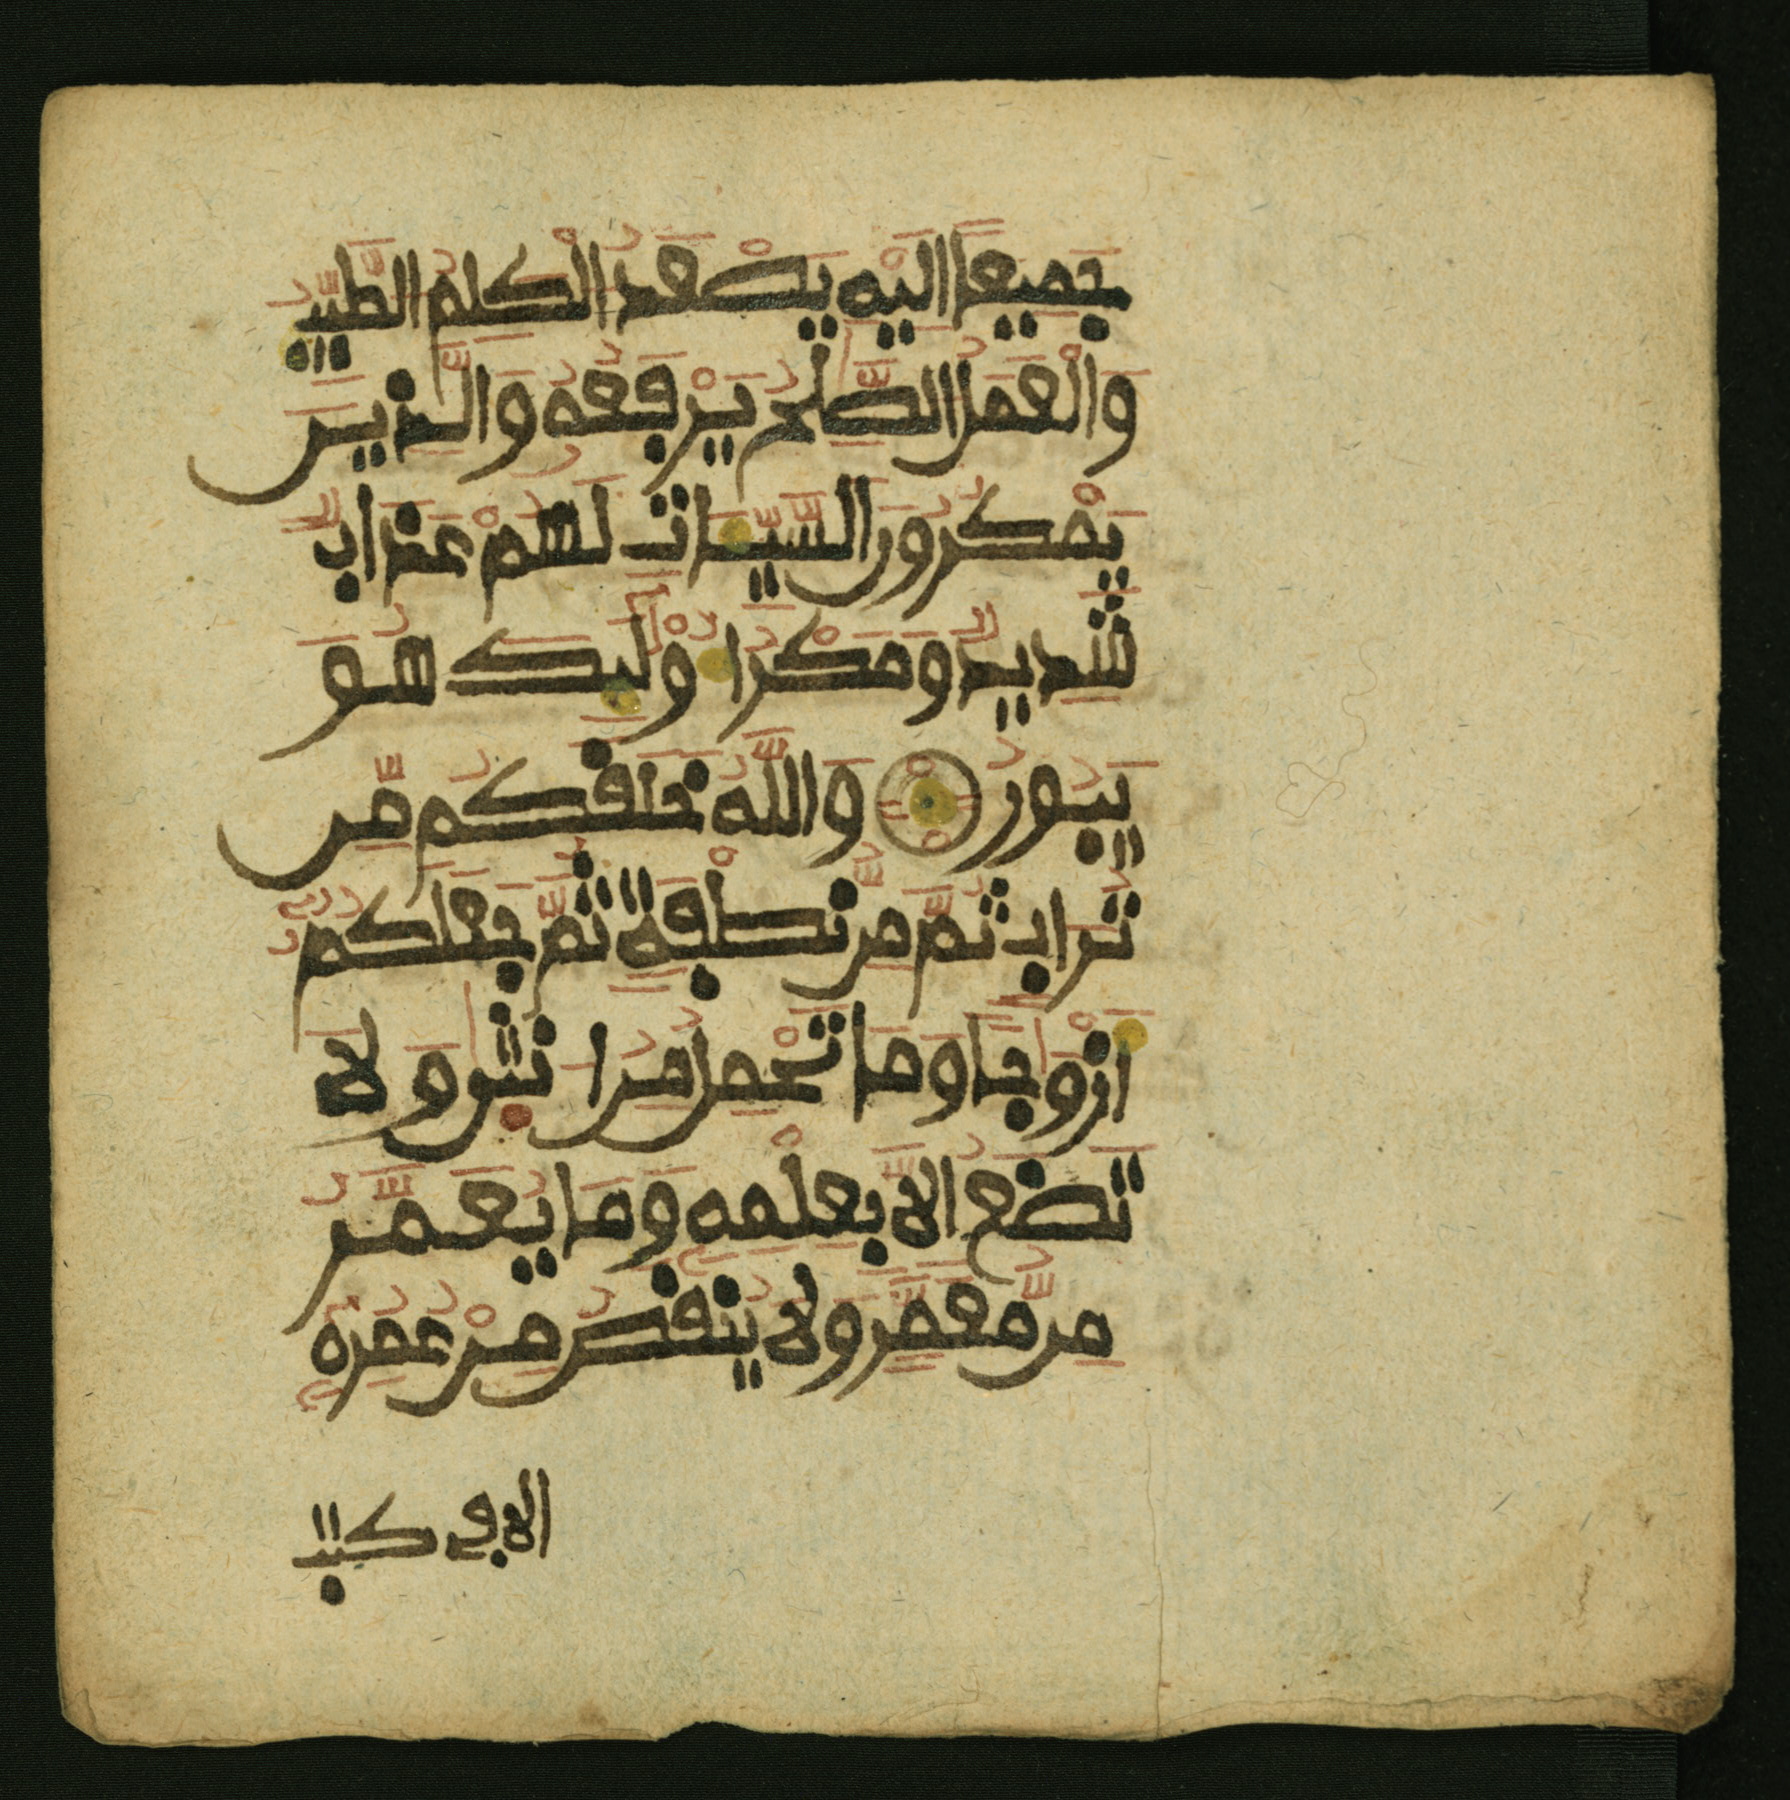 جَمِيعًا اِلَيْهِ يَصْعَدُ الْكَلِمُ الطَّيِّبُ
وَالْعَمَلُ الصَّٰلِحُ يَرْفَعُهُ وَالَّذِينَ
يَمْكُرُونَ السَّيِّـَٔاتِ لَهُمْ عَذَابٌ
شَدِيدٌ وَمَكْرُ اُوْلَٰٓئِكَ هُوَ
يَبُورُ وَاللَّهُ خَلَقَكُم مِّن
تُرَابٍ ثُمَّ مِن نُّطْفَةٍ ثُمَّ جَعَلَكُمُۥ
أَزْوَٰجًا وَمَا تَحْمِلُ مِنُ انثَىٰ وَلَا
تَضَعُ إِلَّا بِعِلْمِهِۦ وَمَا يُعَمَّرُ
مِن مُّعَمَّرٍ وَلَا يُنقَصُ مِنْ عُمُرِهِۦ
الا في كتب